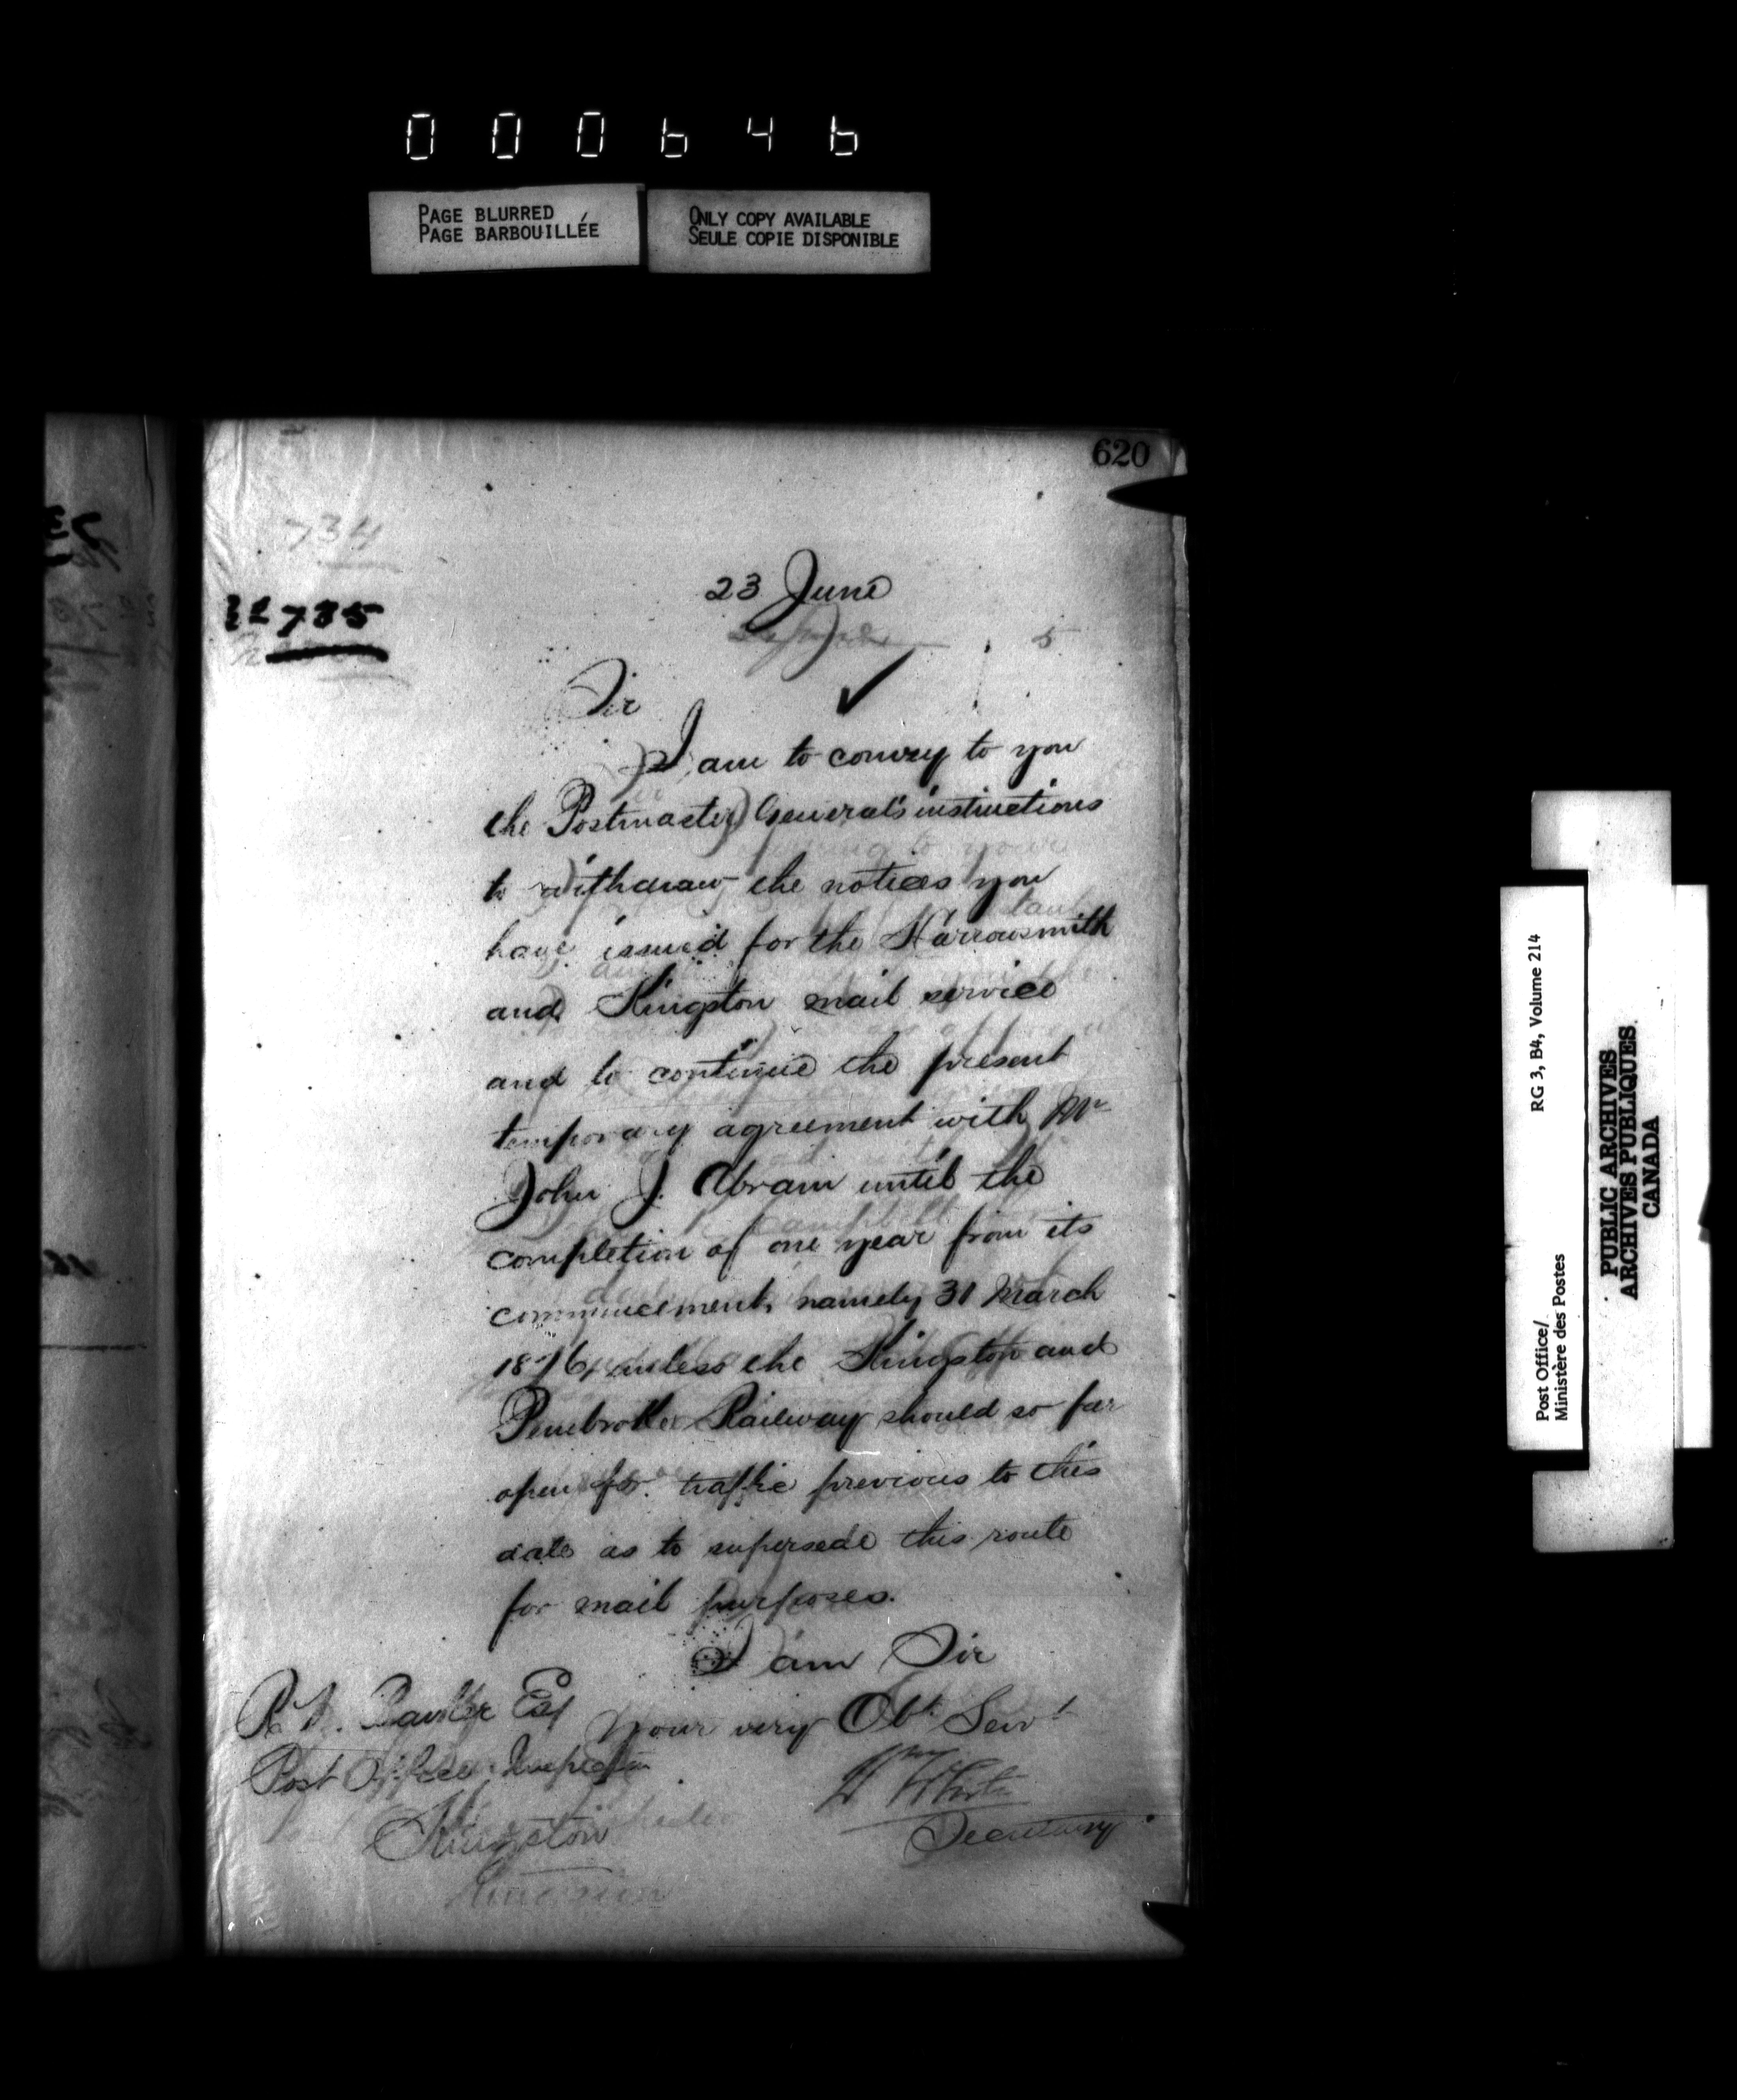 000646
PAGE BLURRED
PAGE BARBOUILLÉE
ONLY COPY AVAILABLE
SEULE COPIE DISPONIBLE
620
734
735
23 June
5
Sir
I am to convey to you
the Postmaster General's instructions
to withdraw the notices you
have issued for the Harrowsmith
and Kingston mail service
and to continue the present
temporary agreement with Mr
John J. Abram until the
completion of one year from its
commencement, namely 31 March
1876, unless the Kingston and
Pembroke Railway should so far
open for traffic previous to this
date as to supersede this route
for mail purposes.
I am Sir
Your very Obt. Servt
R. W. Barker Esq
Post Office Inspector
Kingston
Wm White
Secretary
Post Office/
Ministère des Postes
RG 3, B4, Volume 214
PUBLIC ARCHIVES
ARCHIVES PUBLIQUES
CANADA